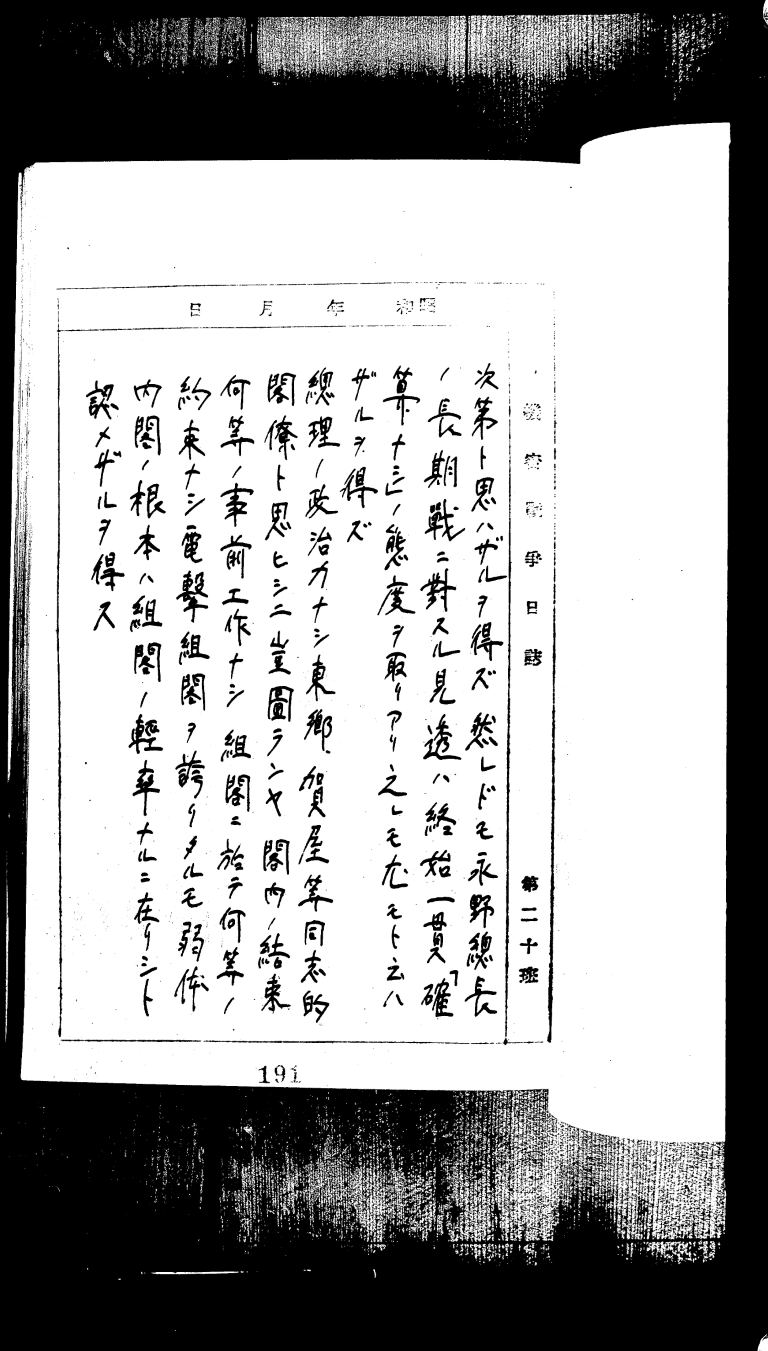 機密戰爭日誌
第二十班
昭和 年 月 日
次第ト思ハザルヲ得ズ 然レドモ永野總長
ノ長期戰ニ對スル見透ハ終始一貫「確
算ナシ」ノ態度ヲ取リアリ之レモ尤モト云ハ
ザルヲ得ズ
總理ノ政治力ナシ東鄕、賀屋等同志的
閣僚ト思ヒシニ豈圖ランヤ閣内ノ結束
何等ノ事前工作ナシ 組閣ニ於テ何等ノ
約束ナシ電擊組閣ヲ誇リタルモ弱体
内閣ノ根本ハ組閣ノ輕率ナルニ在リシト
認メザルヲ得ス
191